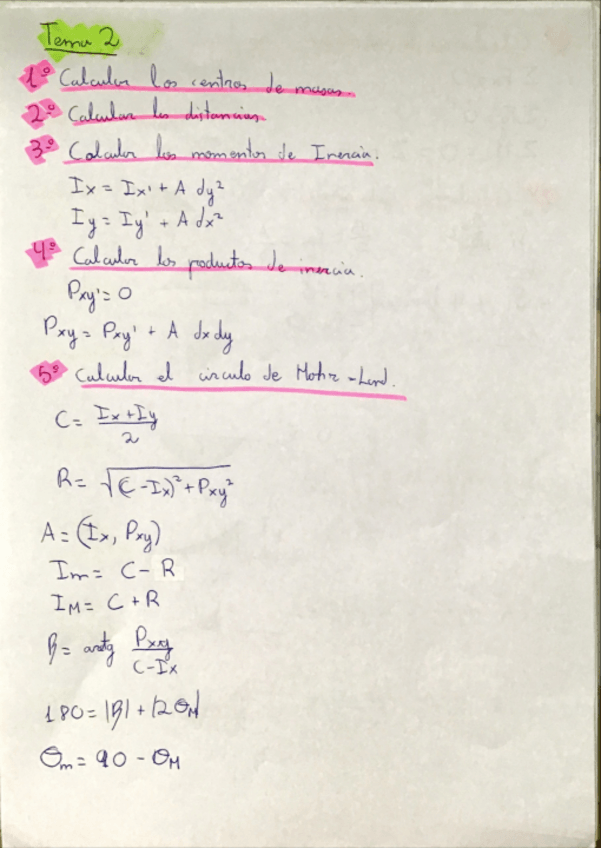 Tema 2
1º Calcular los centros de masas.
2º Calcular las distancias.
3º Calcular los momentos de Inercia.
Ix = Ix' + A dy²
Iy = Iy' + A dx²
4º Calcular los productos de inercia.
Pxy' = 0
Pxy = Pxy' + A dx dy
5º Calcular el circulo de Mohr-Land.
C = (Ix + Iy) / 2
R = √((C - Ix)² + Pxy²)
A = (Ix, Pxy)
Im = C - R
IM = C + R
β = arctg Pxy / (C - Ix)
180 = |β| + |2θM|
θm = 90 - θM